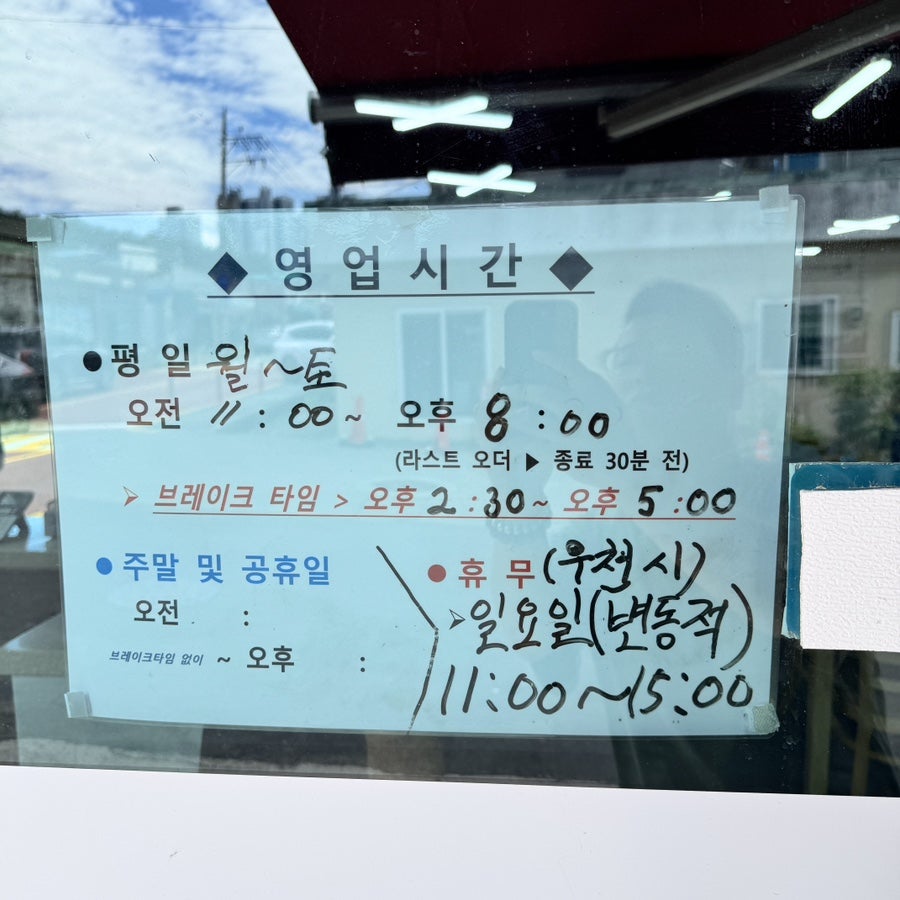 ◆ 영업시간 ◆
● 평일 월~토
오전 11 : 00 ~ 오후 8 : 00
(라스트 오더 ▶ 종료 30분 전)
➢ 브레이크 타임 > 오후 2 : 30 ~ 오후 5 : 00
● 주말 및 공휴일
오전 :
브레이크타임 없이 ~ 오후 :
● 휴무 (우천시)
➢ 일요일(변동적)
11:00~15:00